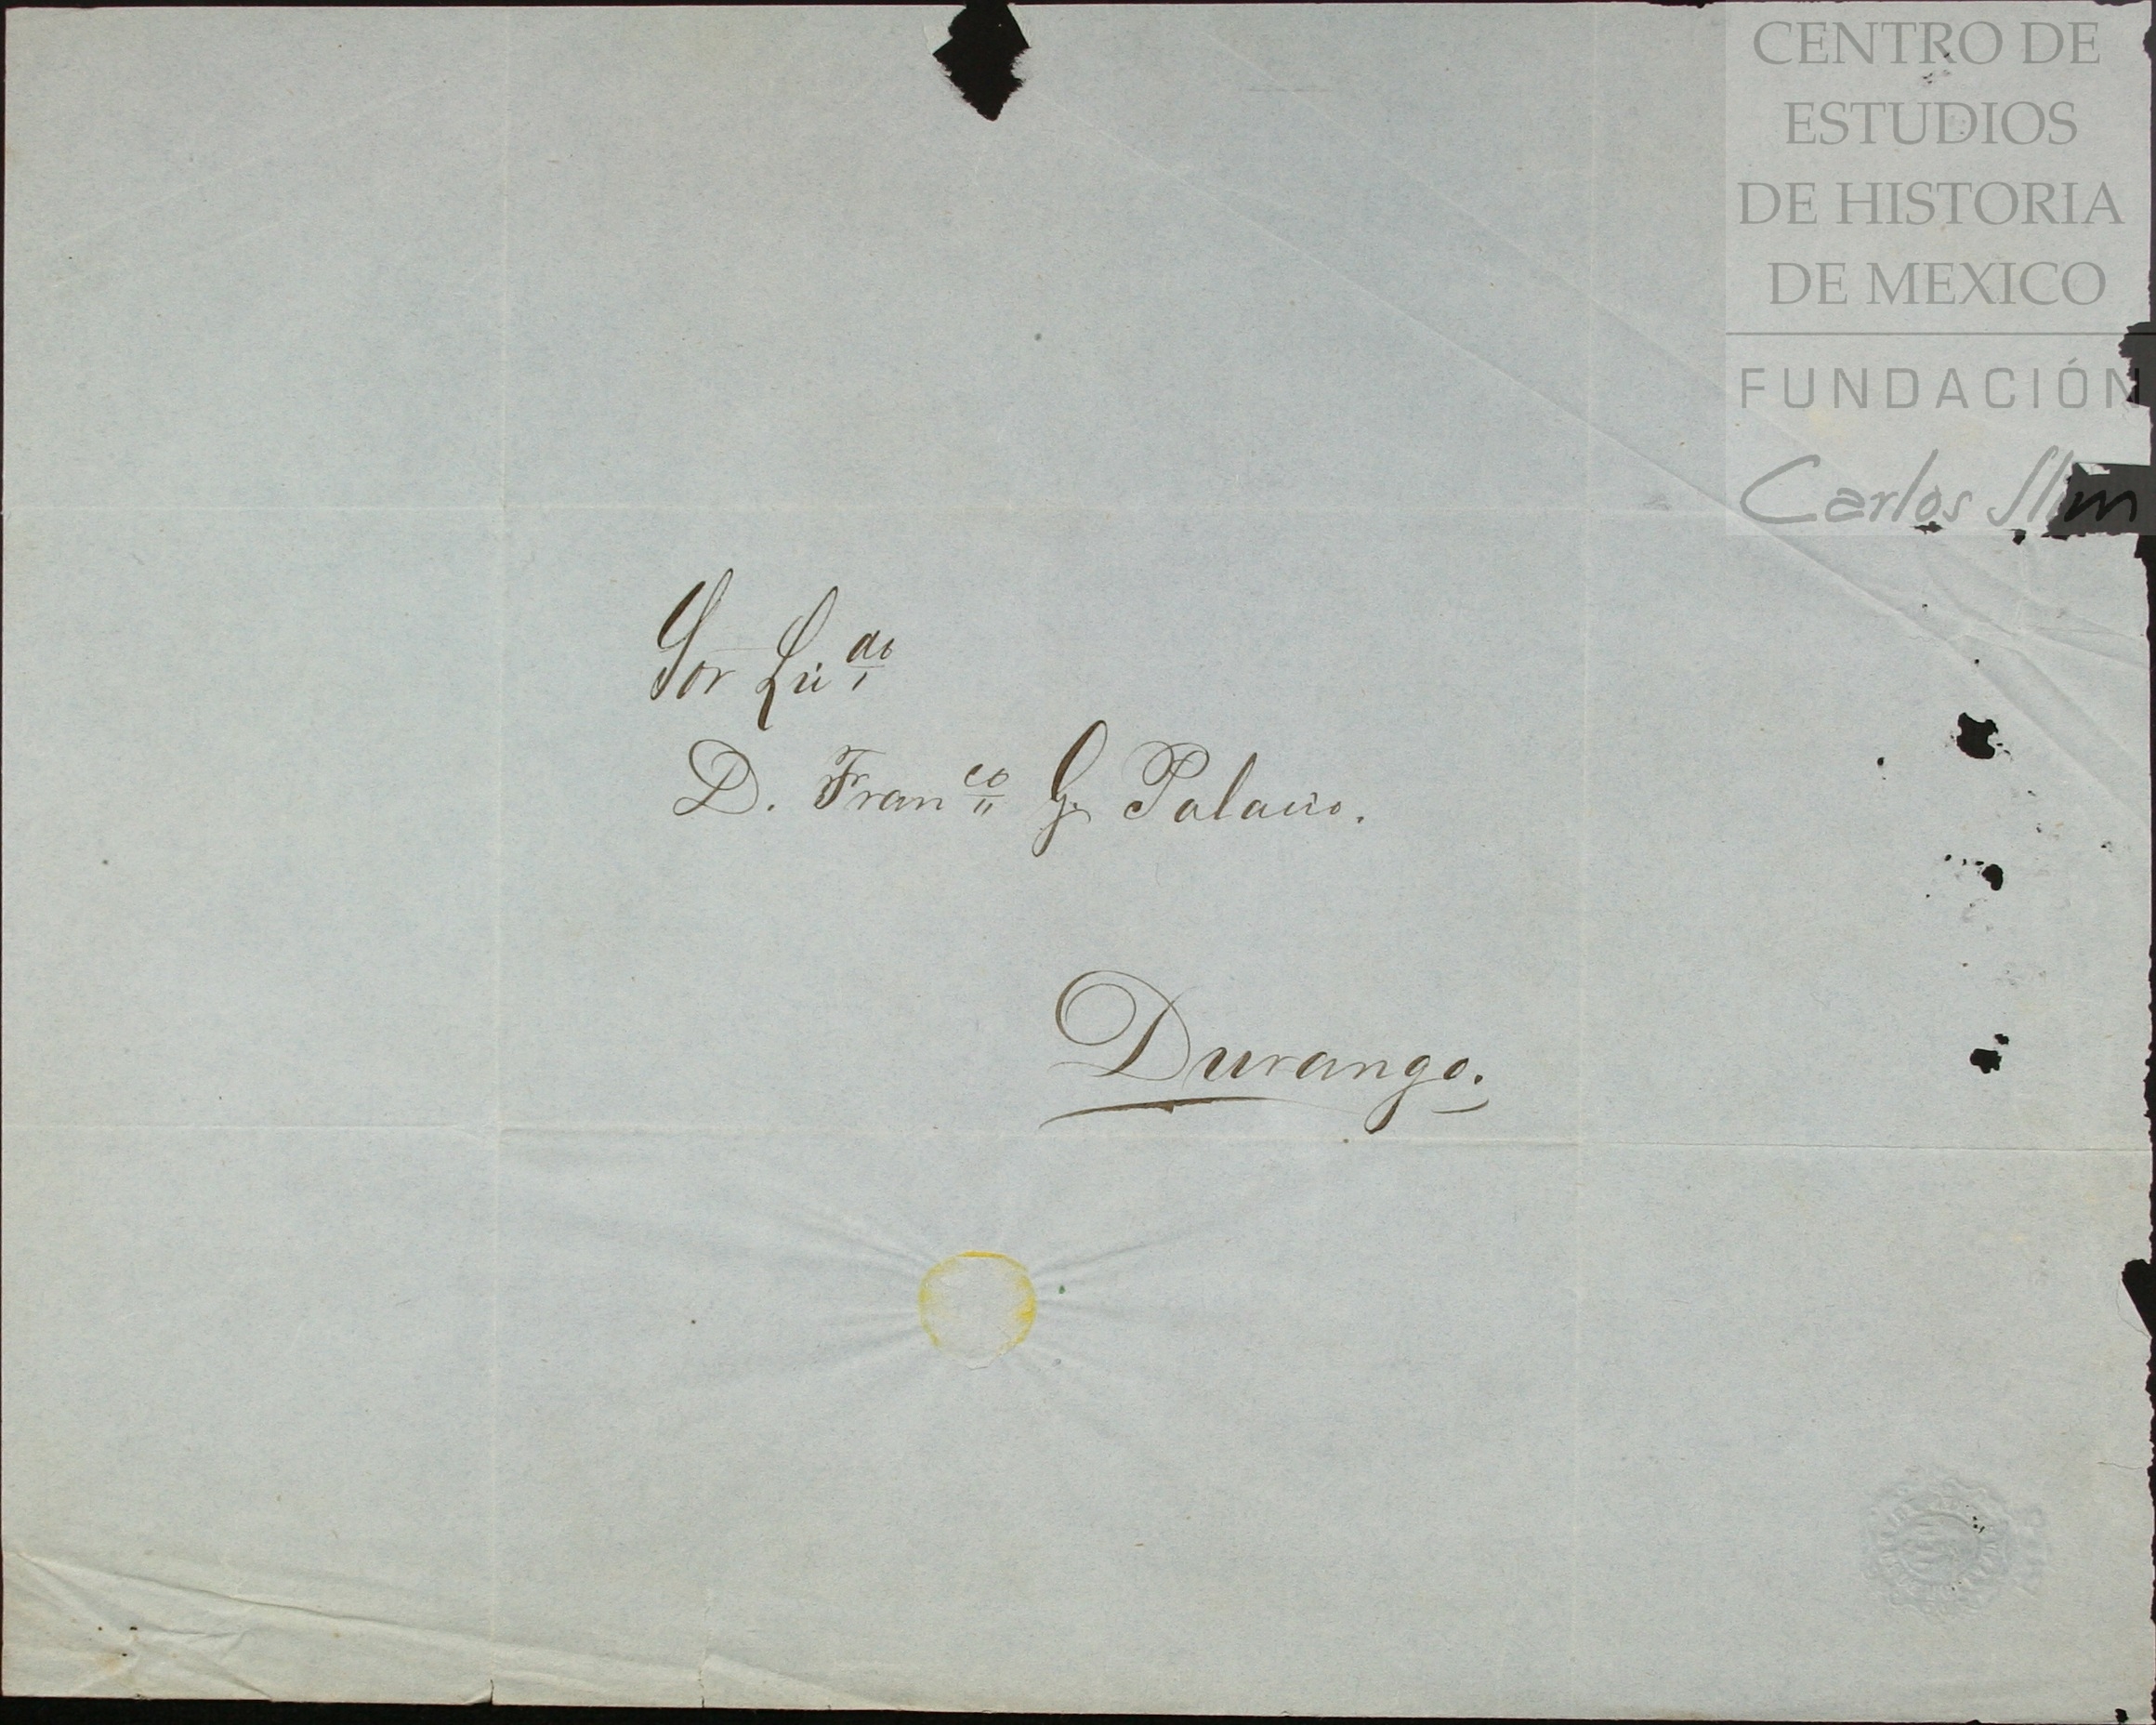 CENTRO DE
ESTUDIOS
DE HISTORIA
DE MEXICO
FUNDACIÓN
Carlos Slim
Sor Lic.do
D. Fran.co G. Palacio.
Durango.